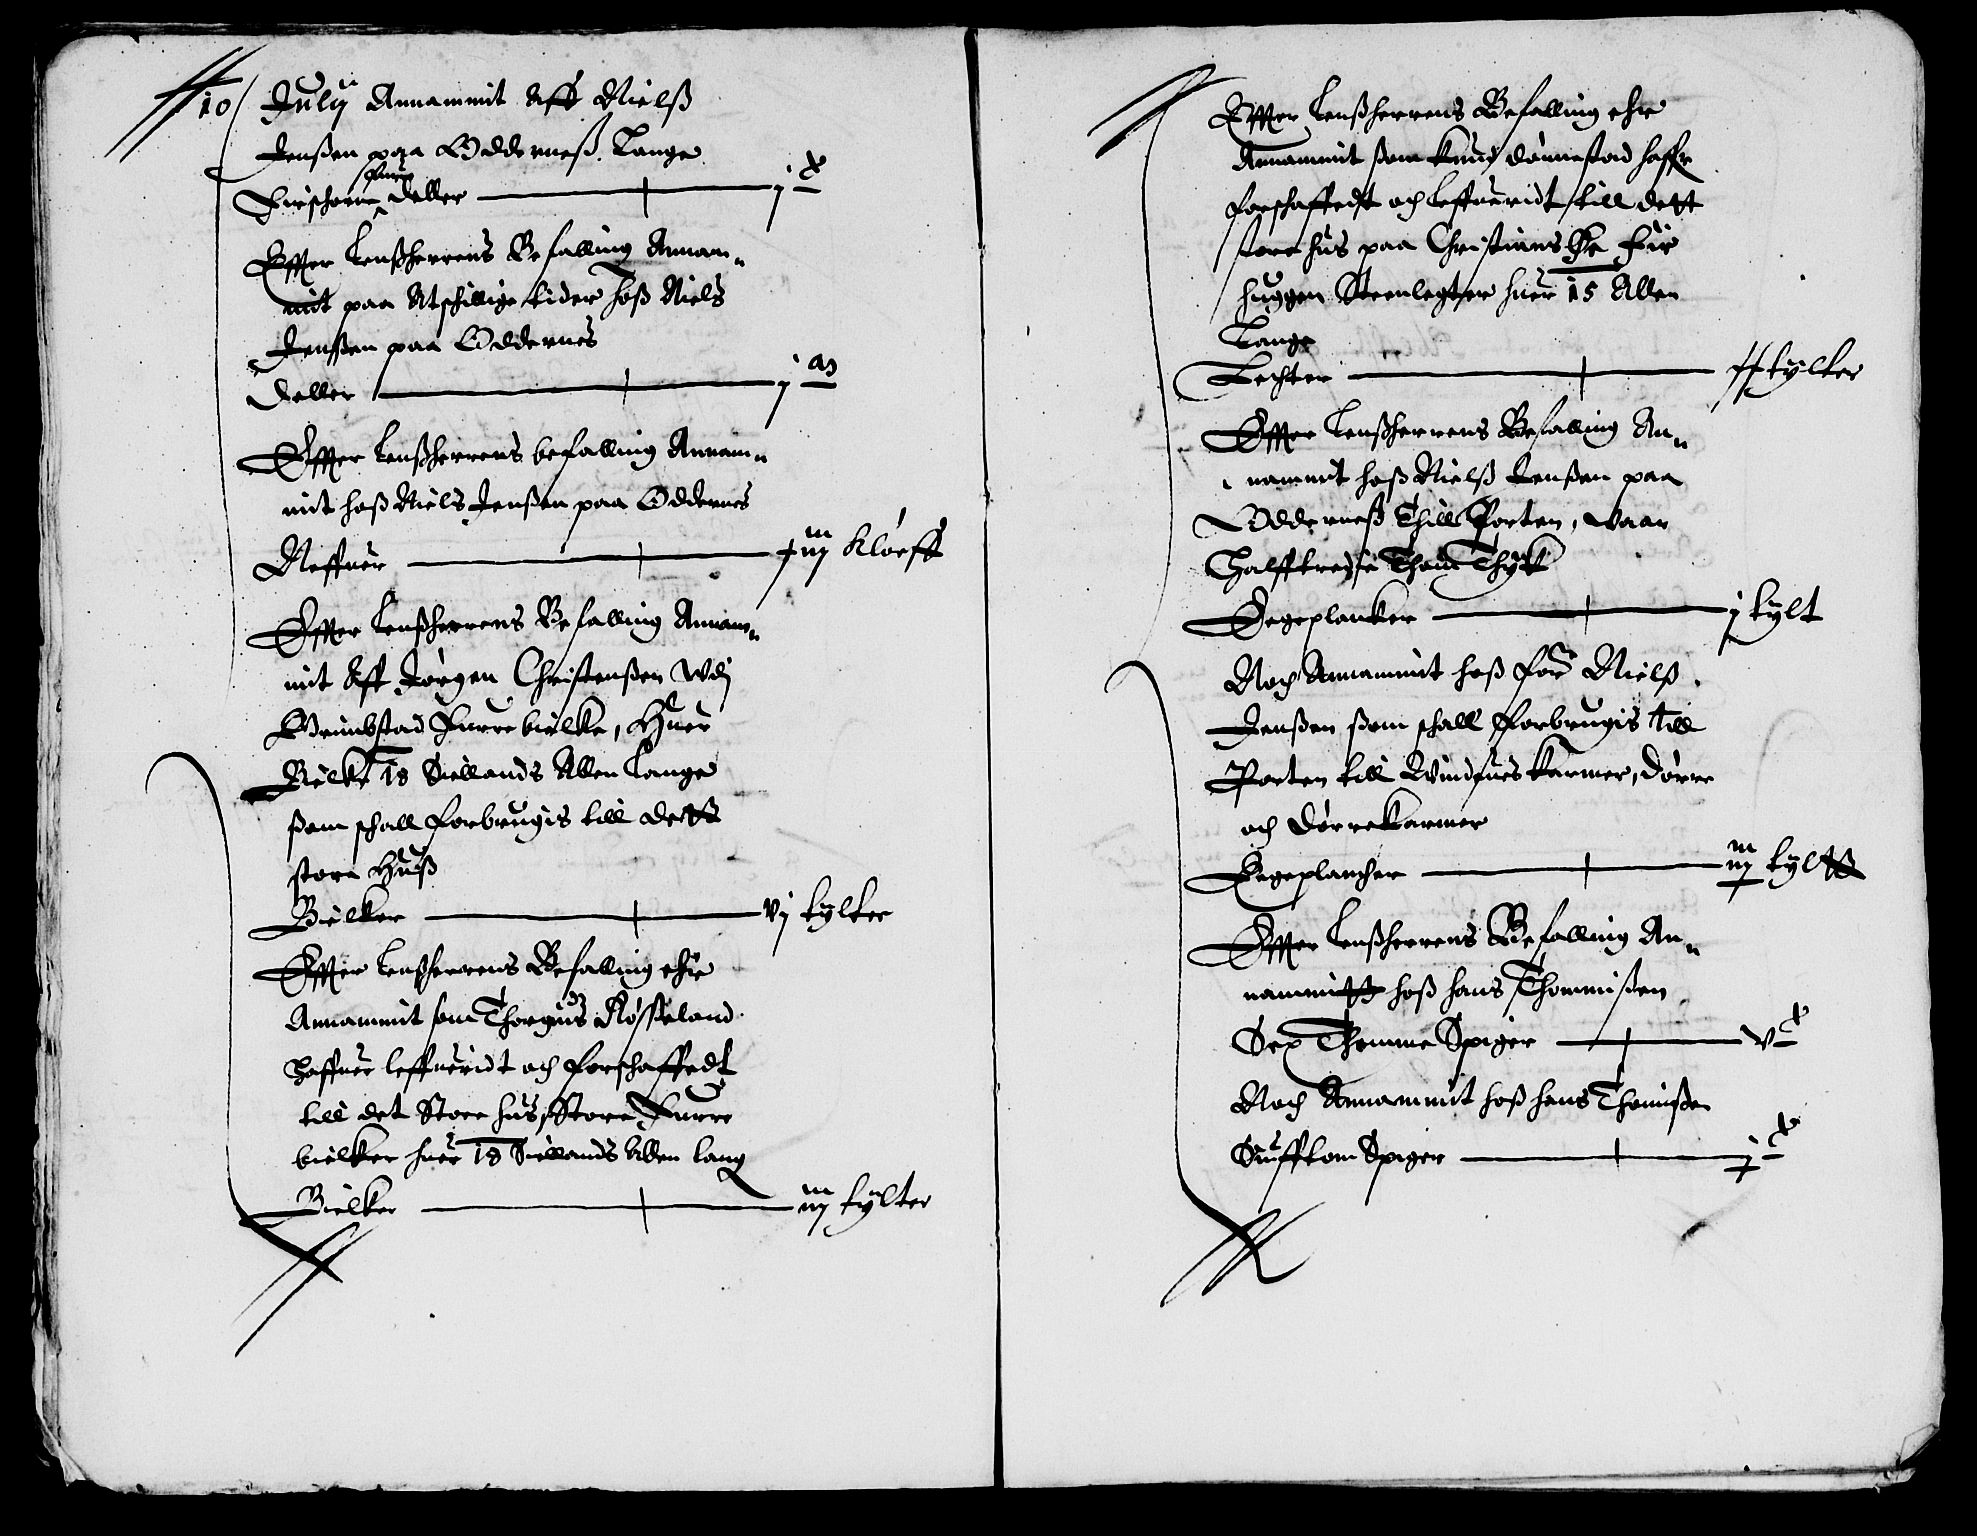 10 / July Annammit Aff Nielß
Jenßen paa Odderneß. Lange
furre
Firschorne Deller — j c
Effter Lenßherrens Befalling Annam„
mit paa Atschillige tider hoß Niels
Jenßen paa Oddernes
Deller — j m
Effter Lenßherrens befalling Annam„
mit hoß Niels Jenßen paa Oddernes
Neffuer — Kløfft
Effter Lenßherrens Befalling Annam„
mit Aff Jørgen Christenßen Wdj
Grimbstad Furre bielke, Huer
Bielke 18 Siellands Allen Lange
ßom schall forbrugis till dett
store Huuß
Bielker — vj tylter
Effter Lenßherrens Befalling ehre
Annammit som Thorgius Røßeland
Haffuer leffueridt och forschaffedt
till det Store hus, Store Furre
bielker huer 18 Siellands Allen lang
Bielker — iiij tylter
Effter Lenßherrens Befalling ehre
Annammit ßom Knud Dønnestad haffr
forschaffedt och leffueridt till dett
store hus paa Christians Øe Fiir
huggen Steenlegter huer 15 Allen
Lange
Lechter — tylter
Effter Lenßherrens Befalling An„
nammit hoß Nielß Jenßen paa
Odderneß Thill Porten, waar
Halfftredie Thom Thyk
Eegeplanker — j tylt
Noch Annammit hoß for: Nielß
Jenßen ßom schall forbrugis till
Porten till Windues karmer, Dørre
och Dørrekarmer
Eegeplancher — iiij tyltt
Effter Lenßherrens Befalling An„
nammitt hoß hans Thommißen
Sex Thomme Spiger — v c
Noch Annammit hoß hans Thomißen
Siufftom Spiger — j c